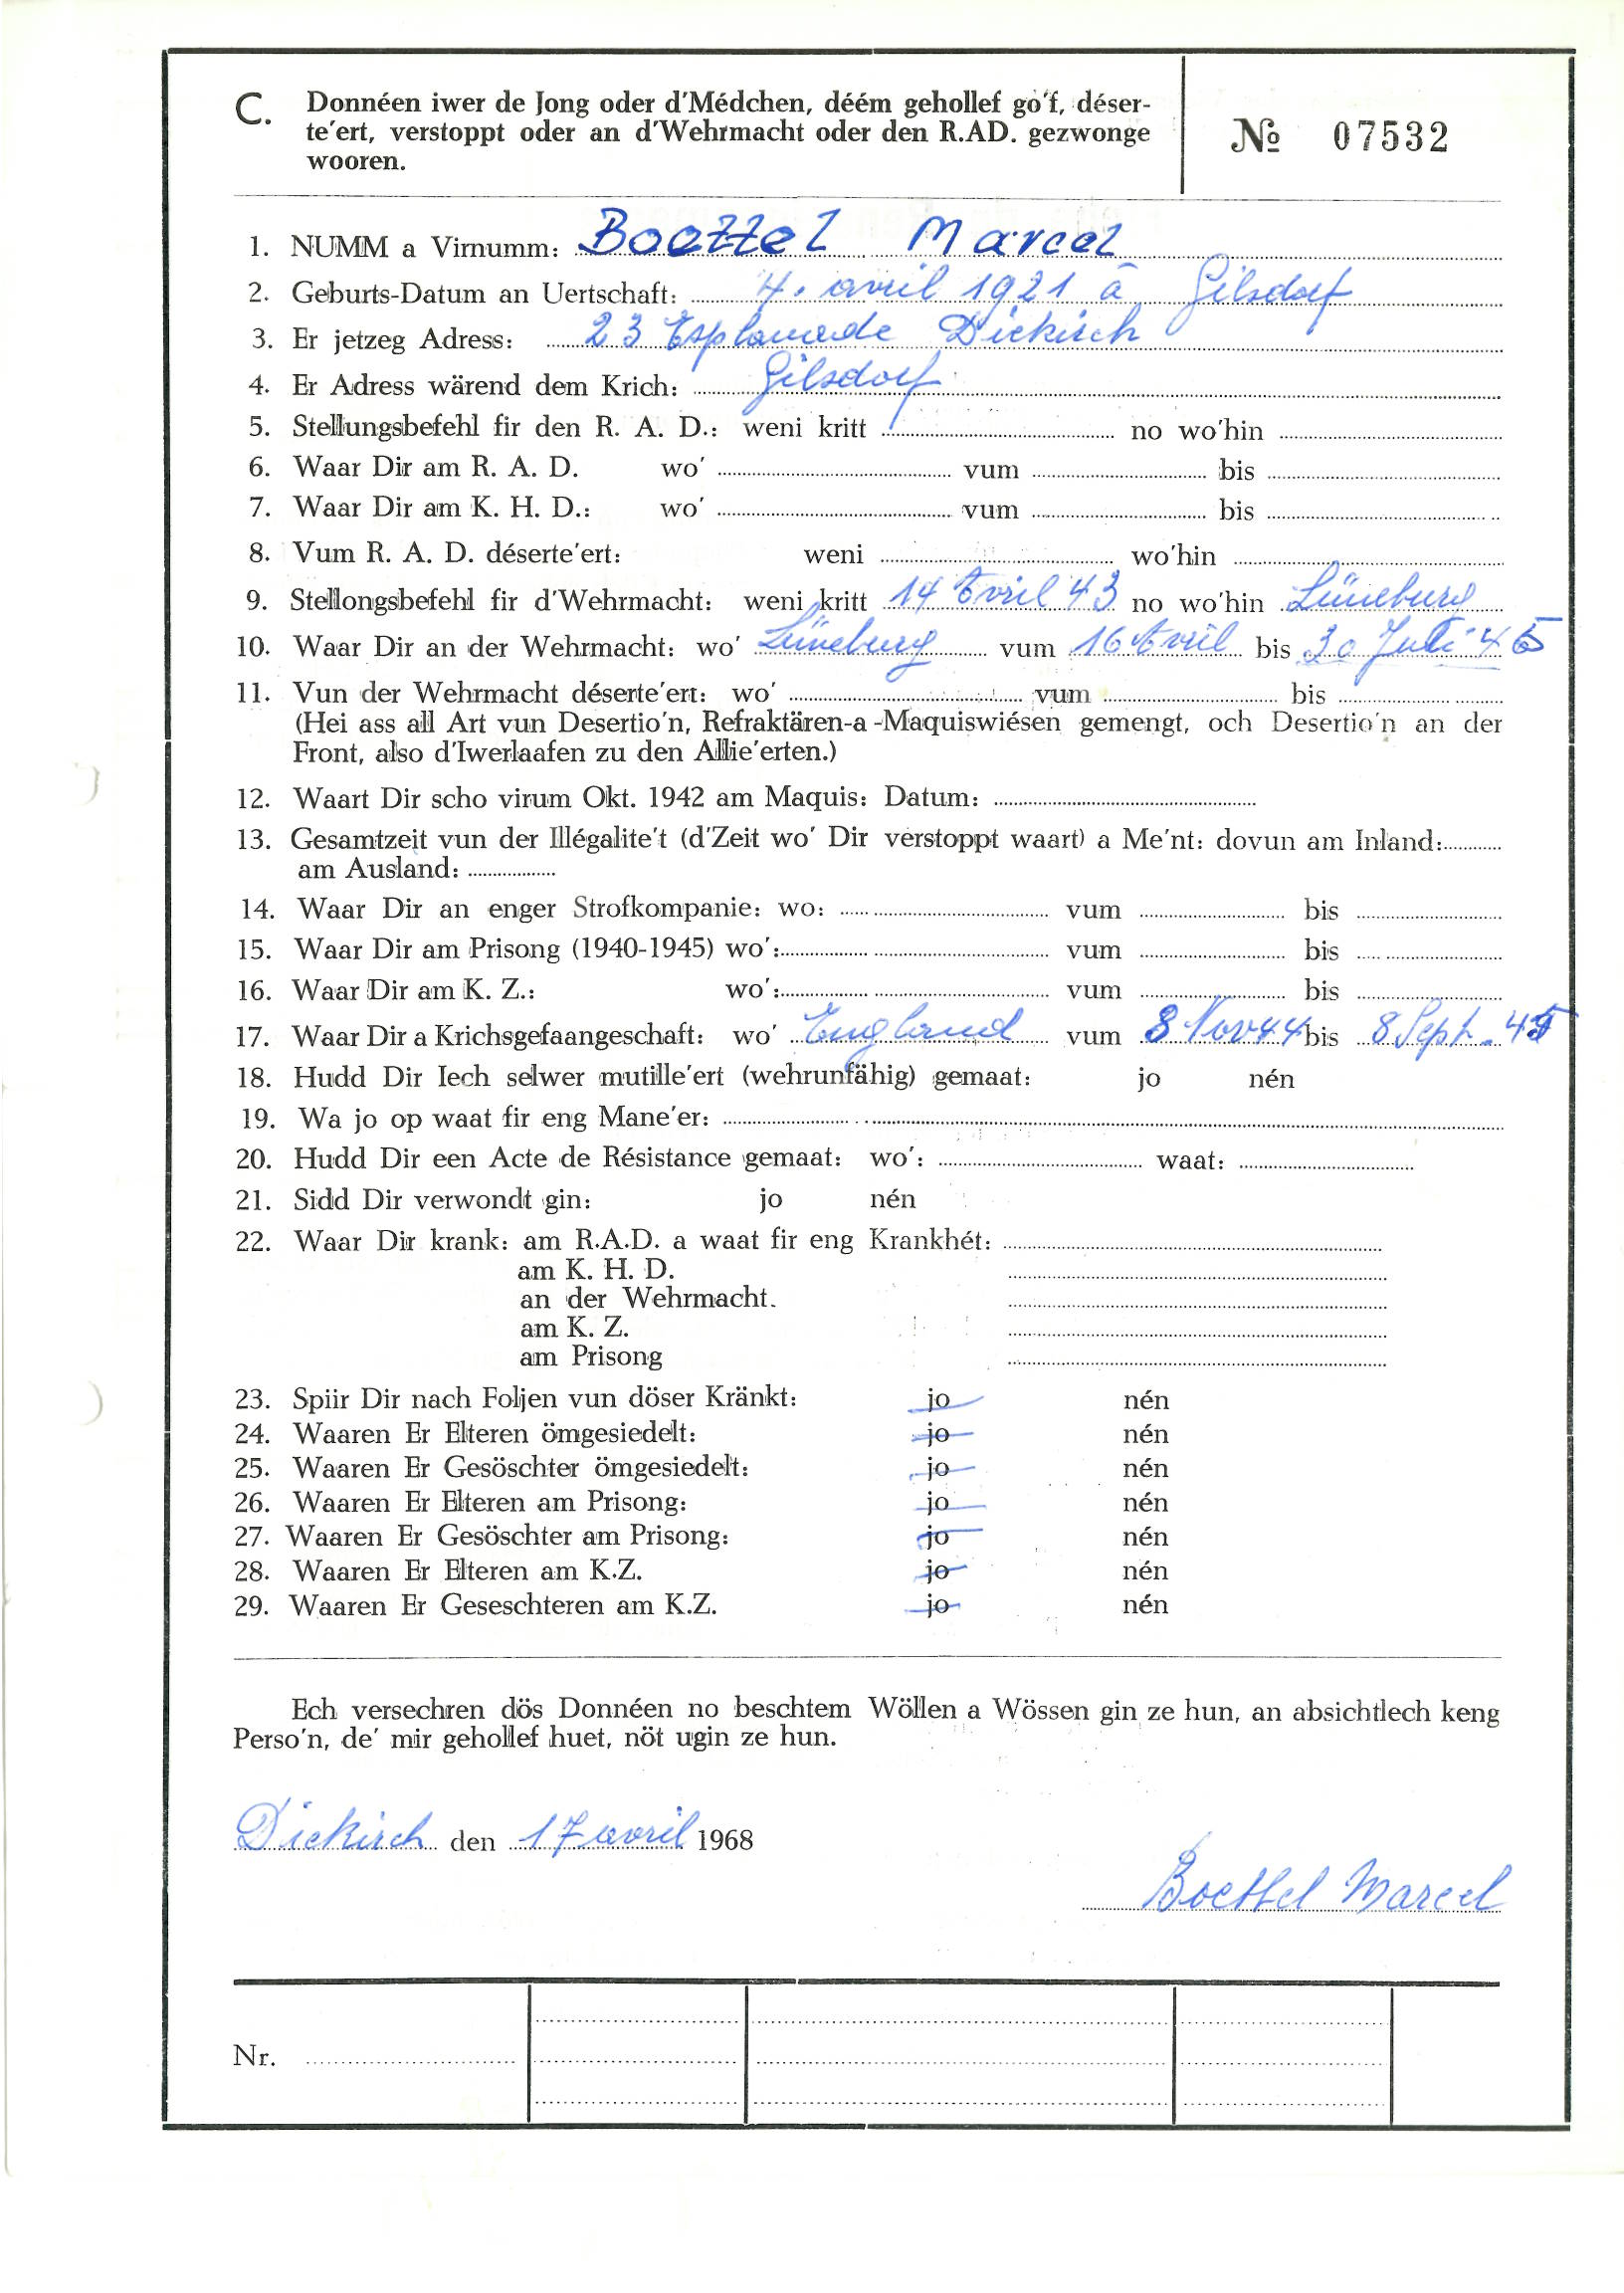 C. Donnéen iwer de Jong oder d'Médchen, déém gehollef go'f, déser-
te'ert, verstoppt oder an d'Wehrmacht oder den R.AD. gezwonge
wooren.
№ 07532
1. NUMM a Virnumm: Boettel Marcel
2. Geburts-Datum an Uertschaft: 4. avril 1921 à Gilsdorf
3. Er jetzeg Adress: 23 Esplanade Diekirch
4. Er Adress wärend dem Krich: Gilsdorf
5. Stellungsbefehl fir den R. A. D.: weni kritt no wo'hin
6. Waar Dir am R. A. D. wo' vum bis
7. Waar Dir am K. H. D.: wo' vum bis
8. Vum R. A. D. déserte'ert: weni wo'hin
9. Stellongsbefehl fir d'Wehrmacht: weni kritt 14 Avril 43 no wo'hin Lüneburg
10. Waar Dir an der Wehrmacht: wo' Lüneburg vum 16 Avril bis 30 45
11. Vun der Wehrmacht déserte'ert: wo' vum bis
(Hei ass all Art vun Desertio'n, Refraktären-a-Maquiswiésen gemengt, och Desertio'n an der
Front, also d'Iwerlaafen zu den Allie'erten.)
12. Waart Dir scho virum Okt. 1942 am Maquis: Datum:
13. Gesamtzeit vun der Illégalite't (d'Zeit wo' Dir verstoppt waart) a Me'nt: dovun am Inland:
am Ausland:
14. Waar Dir an enger Strofkompanie: wo: vum bis
15. Waar Dir am Prisong (1940-1945) wo': vum bis
16. Waar Dir am K. Z.: wo': vum bis
17. Waar Dir a Krichsgefaangeschaft: wo' England vum 8 Nov 44 bis 8 Sept. 45
18. Hudd Dir Iech selwer mutille'ert (wehrunfähig) gemaat: jo nén
19. Wa jo op waat fir eng Mane'er:
20. Hudd Dir een Acte de Résistance gemaat: wo': waat:
21. Sidd Dir verwondt gin: jo nén
22. Waar Dir krank: am R.A.D. a waat fir eng Krankhét:
am K. H. D.
an der Wehrmacht.
am K. Z.
am Prisong
23. Spiir Dir nach Foljen vun döser Kränkt: jo nén
24. Waaren Er Elteren ömgesiedelt: jo nén
25. Waaren Er Gesöschter ömgesiedelt: jo nén
26. Waaren Er Elteren am Prisong: jo nén
27. Waaren Er Gesöschter am Prisong: jo nén
28. Waaren Er Elteren am K.Z. jo nén
29. Waaren Er Geseschteren am K.Z. jo nén
Ech versechren dös Donnéen no beschtem Wöllen a Wössen gin ze hun, an absichtlech keng
Perso'n, de' mir gehollef huet, nöt ugin ze hun.
Diekirch den 17 avril 1968
Boettel Marcel
Nr.